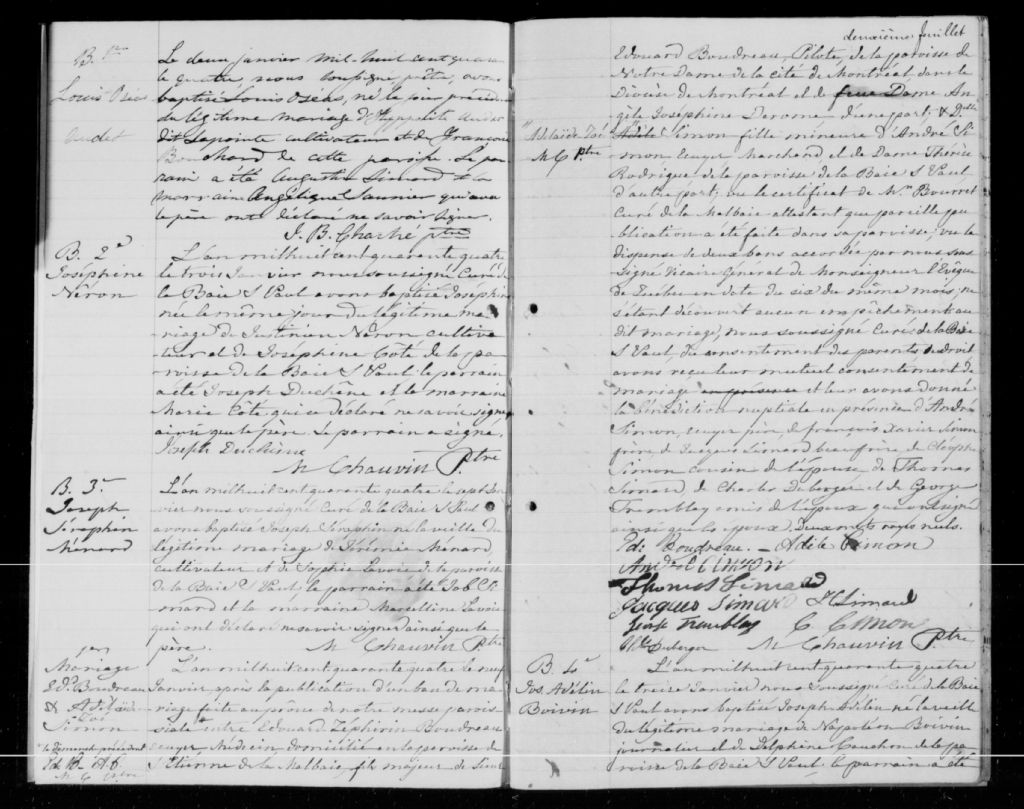 B. 1re
Louis Oséas
Audet
Le deux janvier mil-huit cent quaran
te quatre nous soussigné prêtre, avons
baptisé Louis Oséas, né le jour précédent
du légitime mariage d'Hyppolite Audet
dit Lapointe cultivateur et de Françoise
Bouchard de cette paroisse. Le par
rain a été Augustin Simard et la
marraine Angélique Saunier qui avec
le père ont déclaré ne savoir signer.
J. B. Charté ptre
B. 2e
Joséphine
Néron
L'an mil huit cent quarante quatre
le trois Janvier nous soussigné Curé de
la Baie S Paul avons baptisé Joséphine
née le même jour du légitime ma-
riage de Justinien Néron cultiva-
teur et de Joséphine Côté de la pa-
roisse de la Baie S Paul: le parrain
a été Joseph Duchêne et la marraine
Marie Côté qui a déclaré ne savoir signer
ainsi que le père. Le parrain a signé.
Joseph Duchêne
M Chauvin Ptre
B. 3e
Joseph
Séraphin
Ménard
L'an mil huit cent quarante quatre le sept Jan
vier nous soussigné Curé de la Baie S Paul
avons baptisé Joseph Séraphin né la veille du
légitime mariage de Jérémie Ménard,
cultivateur et de Sophie Lavoie de la paroisse
de la Baie S Paul: le parrain a été Job
nard et la marraine Marcelline Lavoie
qui ont déclaré ne savoir signer ainsi que le
père. M Chauvin Ptre
1er
Mariage
Ed. Boudreau
& Adélaïde
Zoé
Simon
"le dimanche précédent
M C ptre
L'an mil huit cent quarante quatre le neuf
Janvier après la publication d'un ban de ma-
riage faite au prône de notre messe parois
siale entre Edouard Zéphirin Boudreau
écuyer, Médecin, domicilié en la paroisse de
S Etienne de la Malbaie, fils majeur de Sieur
deuxième feuillet
Edouard Boudreau, Pilote, de la paroisse de
Notre Dame de la cité de Montréal, dans le
Diocèse de Montréal et de feue Dame An-
gèle Joséphine Derome d'une part; & Dlle
"Adélaïde Zoé
M C Ptre
Adèle Simon fille mineure d'André Si
mon, Ecuyer Marchand, et de Dame Thérèse
Rodrigue de la paroisse de la Baie S Paul
d'autre part; vu le certificat de Mr Bourret
Curé de la Malbaie attestant que pareille pu
blication a été faite dans sa paroisse; vu la
dispense de deux bans accordée par nous sous
signé Vicaire Général de Monseigneur l'Evêque
de Québec en date du six du même mois, ne
s'étant découvert aucun empêchement au
dit mariage, nous soussigné Curé de la Baie
S Paul, du consentement des parents de droit
avons reçu leur mutuel consentement de
mariage en présence et leur avons donné
la bénédiction nuptiale en présence d'André
Simon, écuyer, père, de François Xavier Simon
frère, de Jacques Simard beau frère, de Cléophe
Simon cousin de l'épouse, de Thomas
Simard, de Charles Deberger et de George
Tremblay amis de l'époux qui ont signé
ainsi que les époux. Deux mots rayés nuls.
Ed. Boudreau. — Adèle Simon
André Simon
Thomas Simard
Jacques Simard
George Tremblay C Cimon
Deberger M Chauvin Ptre
B. 4e
Jos. Adélin
Boivin
L'an mil huit cent quarante quatre
le treize Janvier nous soussigné Curé de la Baie
S Paul avons baptisé Joseph Adélin né la veille
du légitime mariage de Napoléon Boivin
journalier et de Delphine Cauchon de la pa
roisse de la Baie S Paul: le parrain a été